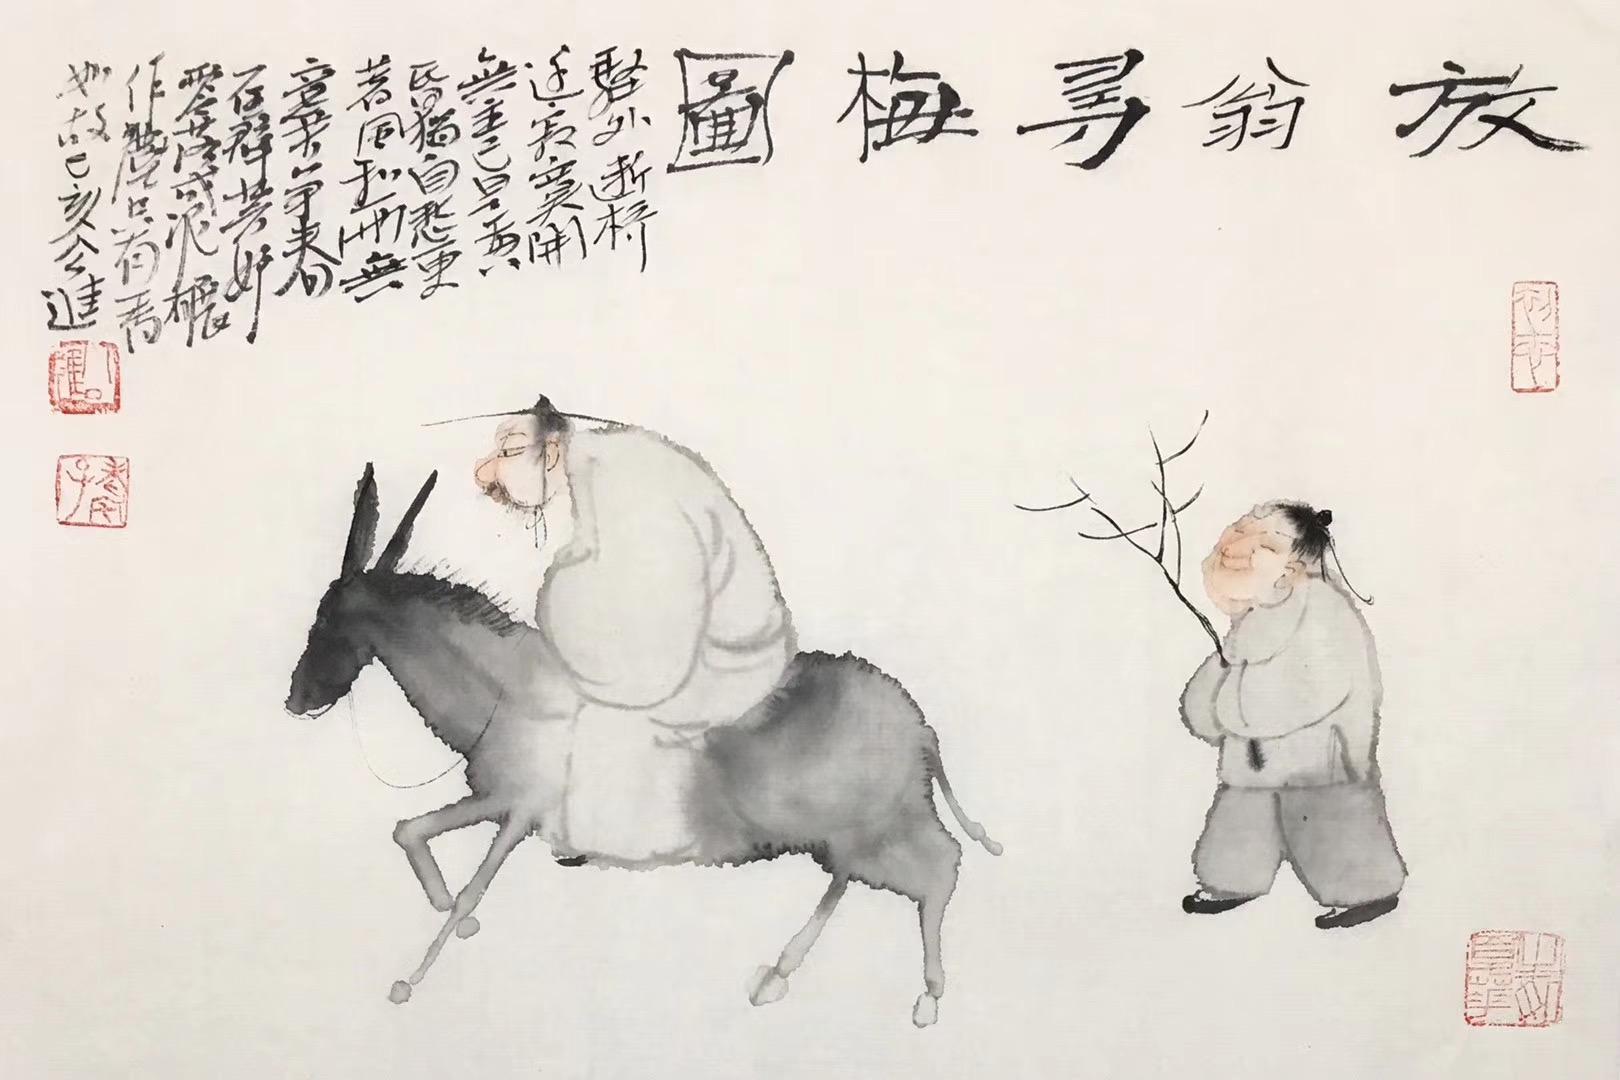 放翁尋梅圖
驛外断桥
邊寂寞開
無主已是黃
昏猶自愁更
著風和雨無
意苦爭春
一任群芳妒
零落成泥碾
作塵只有香
如故己亥進